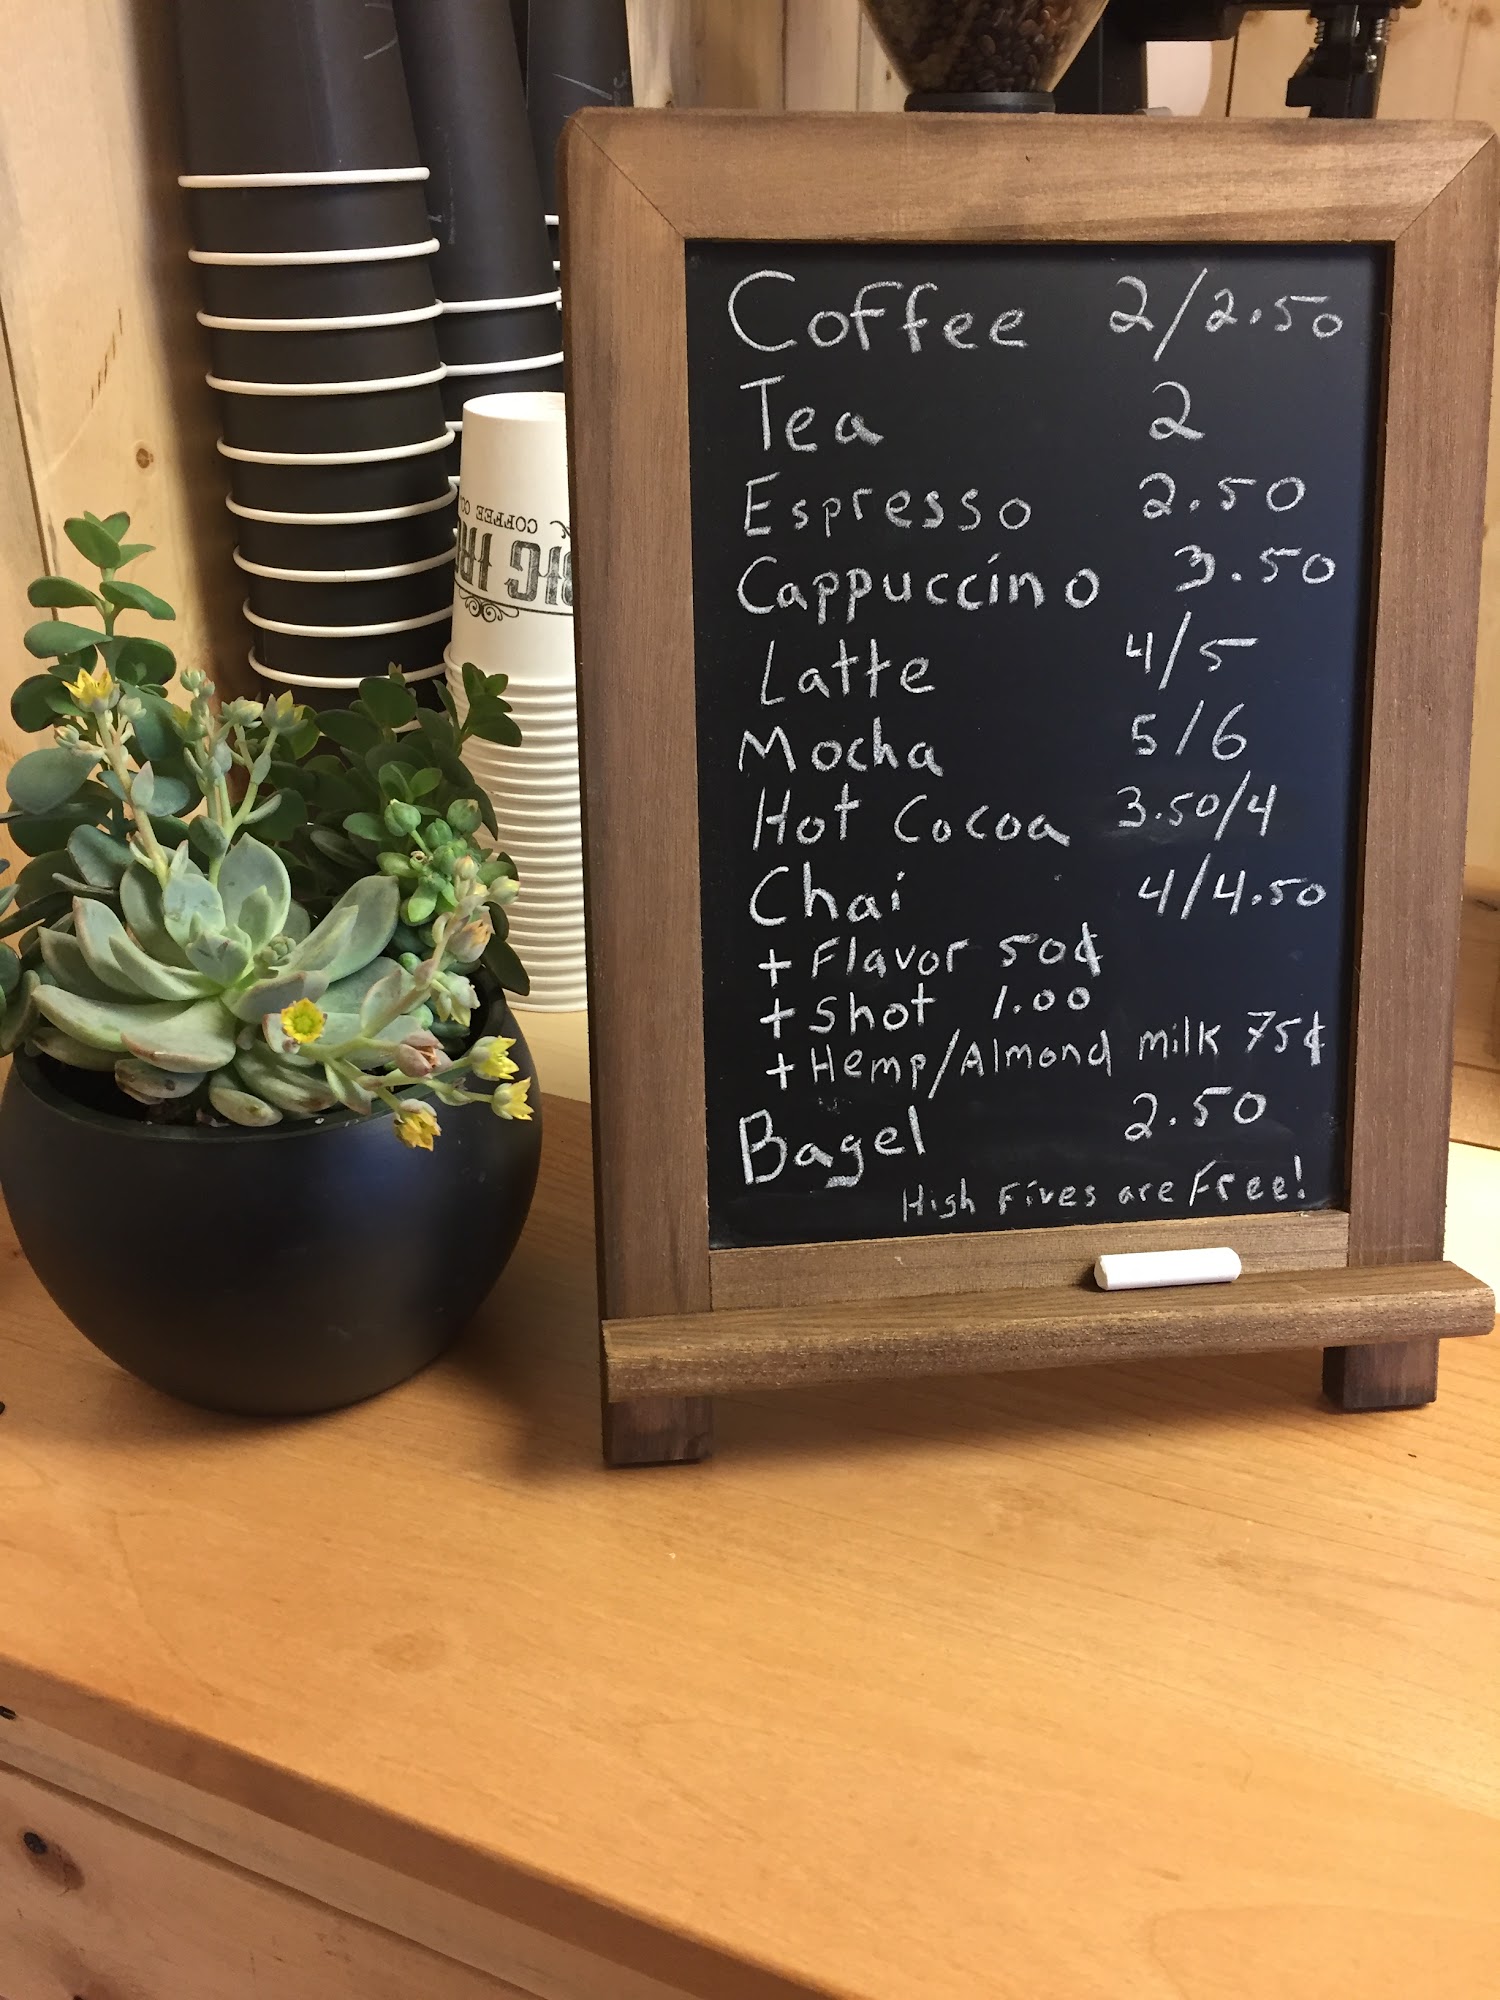 Coffee 2/2.50
Tea 2
Espresso 2.50
Cappuccino 3.50
Latte 4/5
Mocha 5/6
Hot Cocoa 3.50/4
Chai 4/4.50
+ Flavor 50¢
+ Shot 1.00
+ Hemp/Almond milk 75¢
Bagel 2.50
High Fives are Free!
BIG
COFFEE